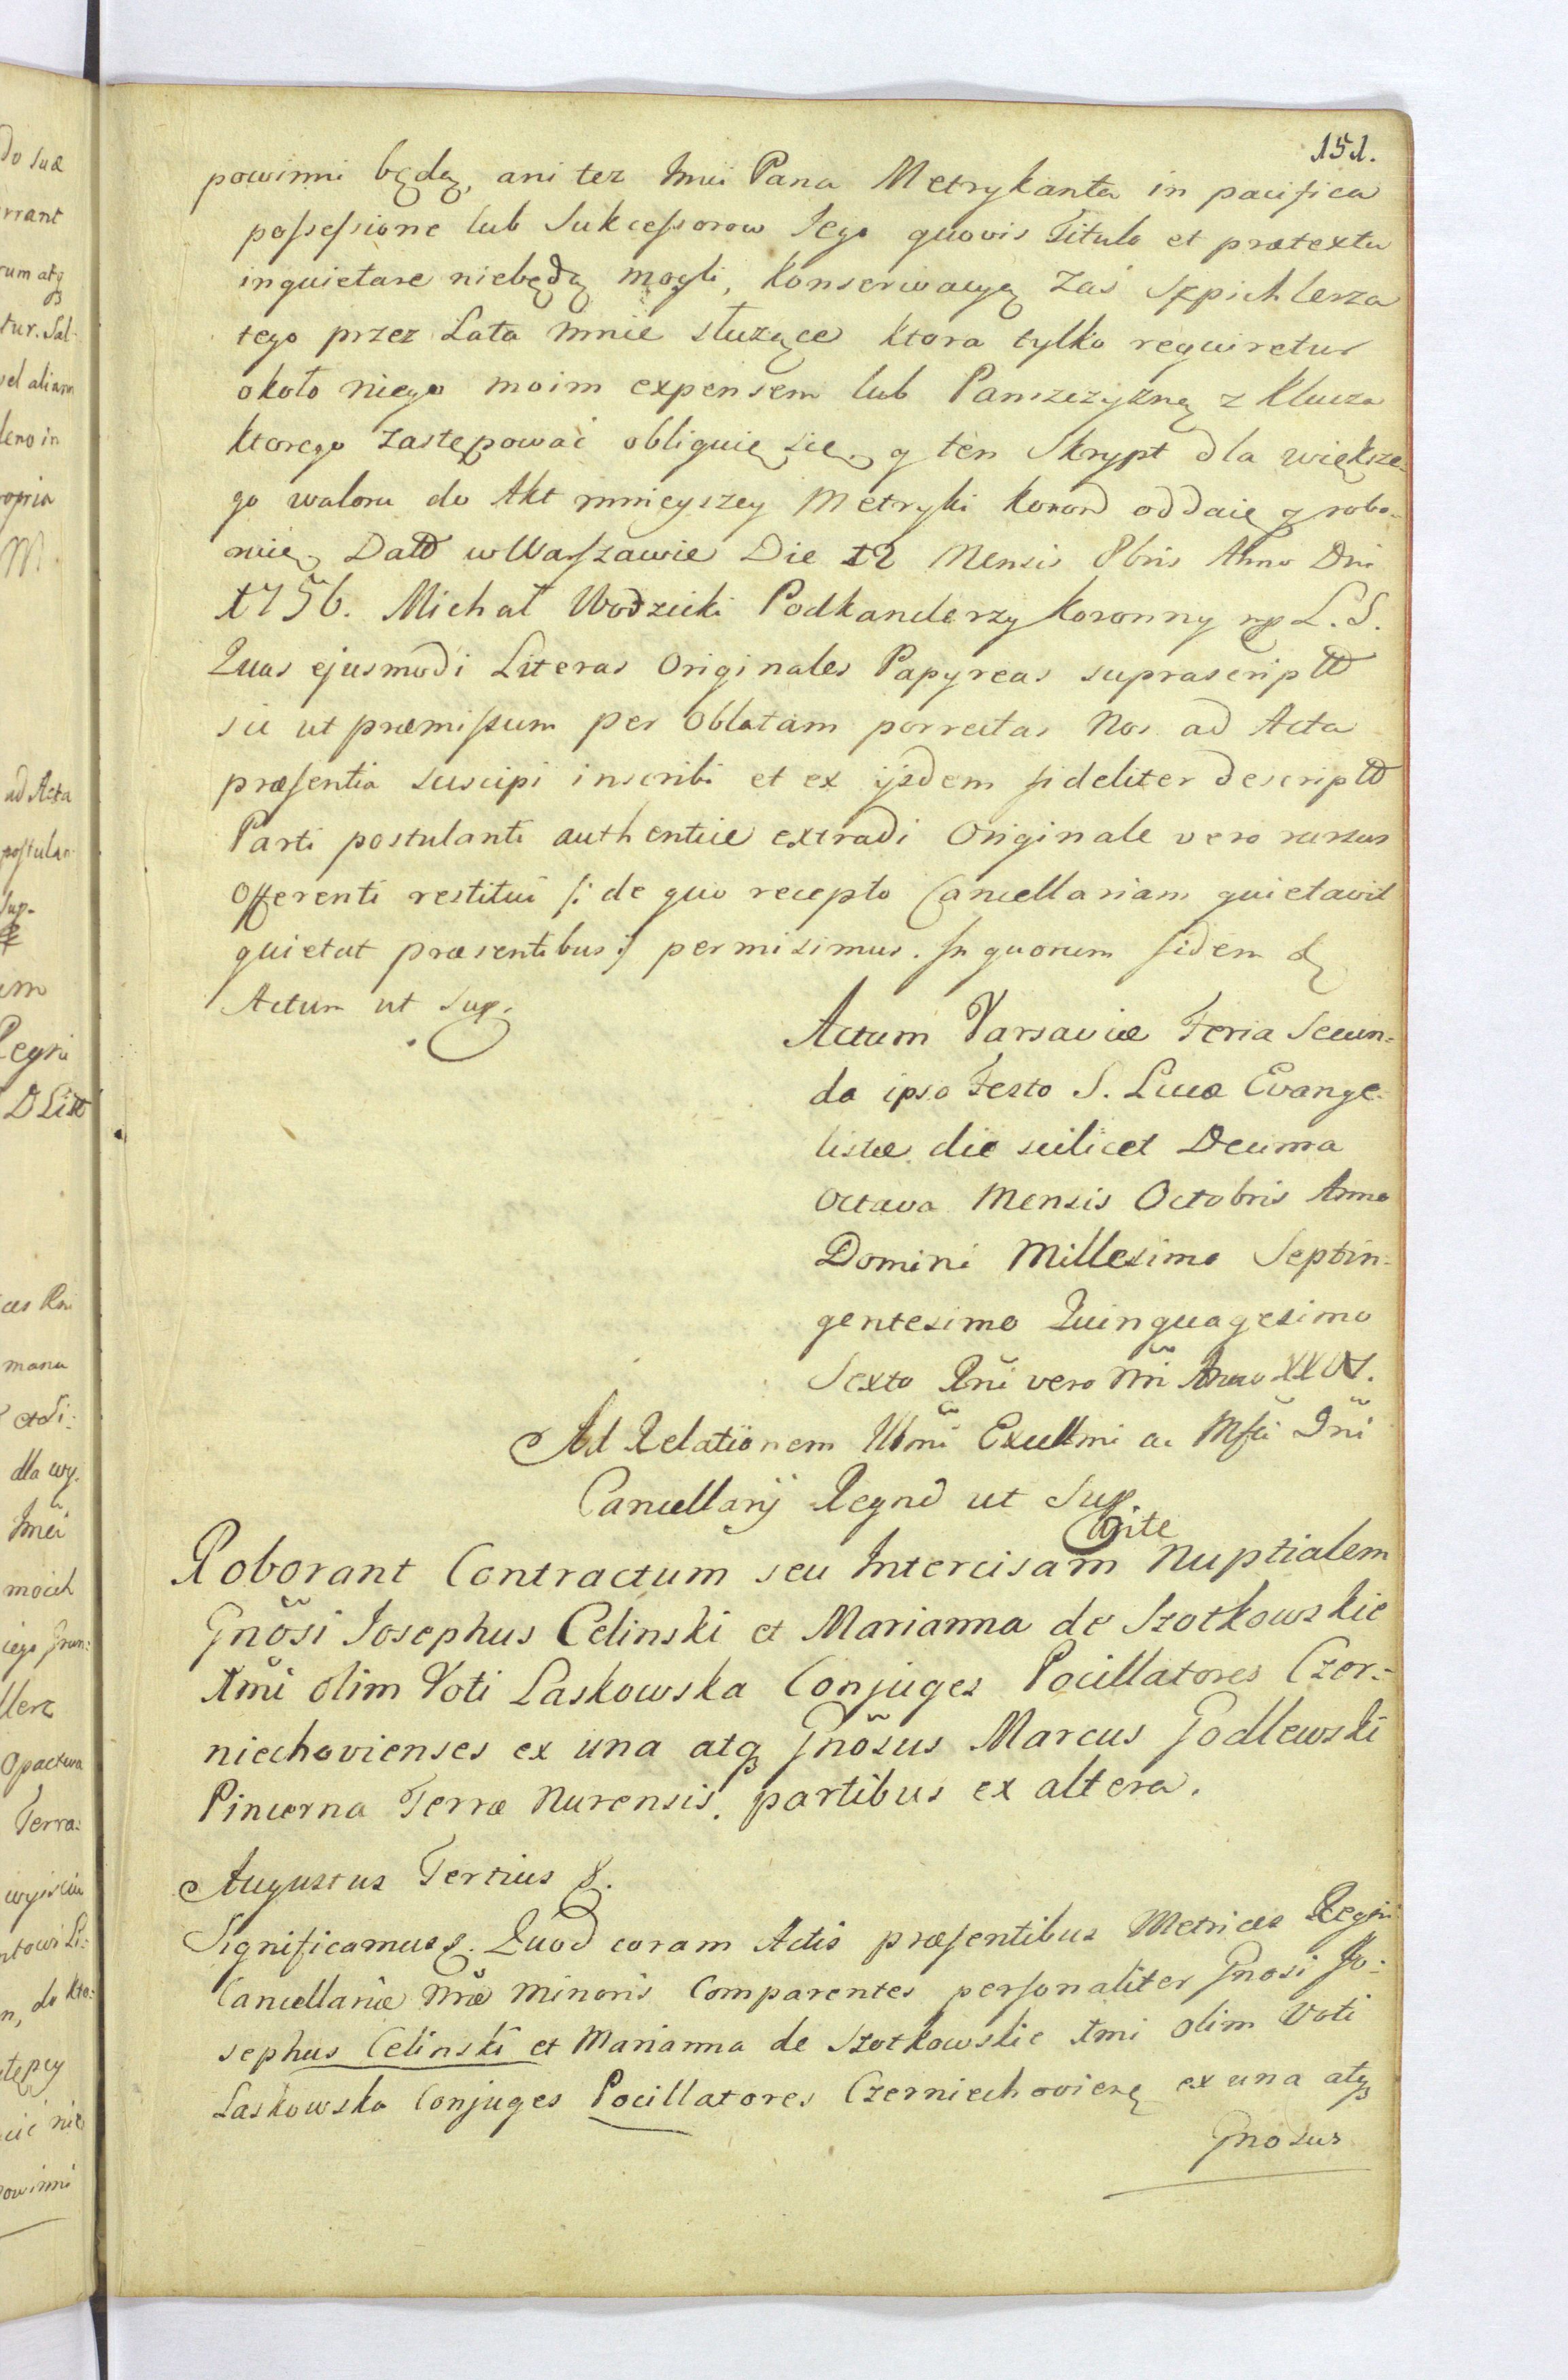 151.
powinni będą, ani tez Jmci Pana Metrykanta in pacifica
possessione lub Sukcessorow Jego quovis Titulo et prætextu
inquietare niebędą mogli, konserwacyą zaś Szpichlerza
tego przez Lata mnie służące ktora tylko requiretur
około niego moim expensem lub Panszczyzną z Klucza
ktorego zastępować obliguię się, y ten Skrypt dla większe-
go waloru do Akt mnieyszey Metryki Koron oddaię y robo-
ruię. Datt w Warszawie Die 12 Mensis 8bris Anno Dni
1756. Michał Wodzicki Podkanclerzy Koronny mp L.S.
Quas ejusmodi Literas Originales Papyreas suprascriptt
sic ut præmissum per Oblatam porrectas Nos ad Acta
præsentia suscipi inscribi et ex ijsdem fideliter descriptt
Parti postulanti authentice extradi Originale vero rursus
Offerenti restitui /: de quo recepto Cancellariam quietavit
quietat præsentibus :/ permisimus. In quorum fidem &
Actum ut Sup.
Actum Varsaviæ Feria Secun-
da ipso Festo S. Lucæ Evange-
listæ die scilicet Decima
Octava Mensis Octobris Anno
Domini Millesimo Septin-
gentesimo Quinquagesimo
Sexto Rni vero Nri Anno XXIV.
Ad Relationem Illmi Excellmi ac Mfci Dni
Cancellarij Regnd ut Sup
Roborant Contractum seu Intercisam Nuptialem
Gnosi Josephus Celinski et Marianna de Szotkowskie
1mi olim Voti Laskowska Conjuges Pocillatores Czer-
niechovienses ex una atq Gnosus Marcus Godlewski
Pincerna Terræ Nurensis. partibus ex altera.
Augustus Tertius &.
Significamus &. Quod coram Actis præsentibus Metrices Regni
Cancellariæ Nræ Minoris Comparentes personaliter Gnosi Jo-
sephus Celinski et Marianna de Szotkowskie 1mi olim Voti
Laskowska Conjuges Pocillatores Czerniechoviens ex una atq
Gnosus
do suæ
rrant
rum atq
tur. Sal-
vel aliam
leno in
ropria
M.
ad Acta
postulan-
Sup.
im
Regni
D List
manu
dla wy-
Jmci
moich
llerz
Opactwa
Terra:
wyiściu
ntowi Li:
n, do kto:
tępcy
cić nie
powinni